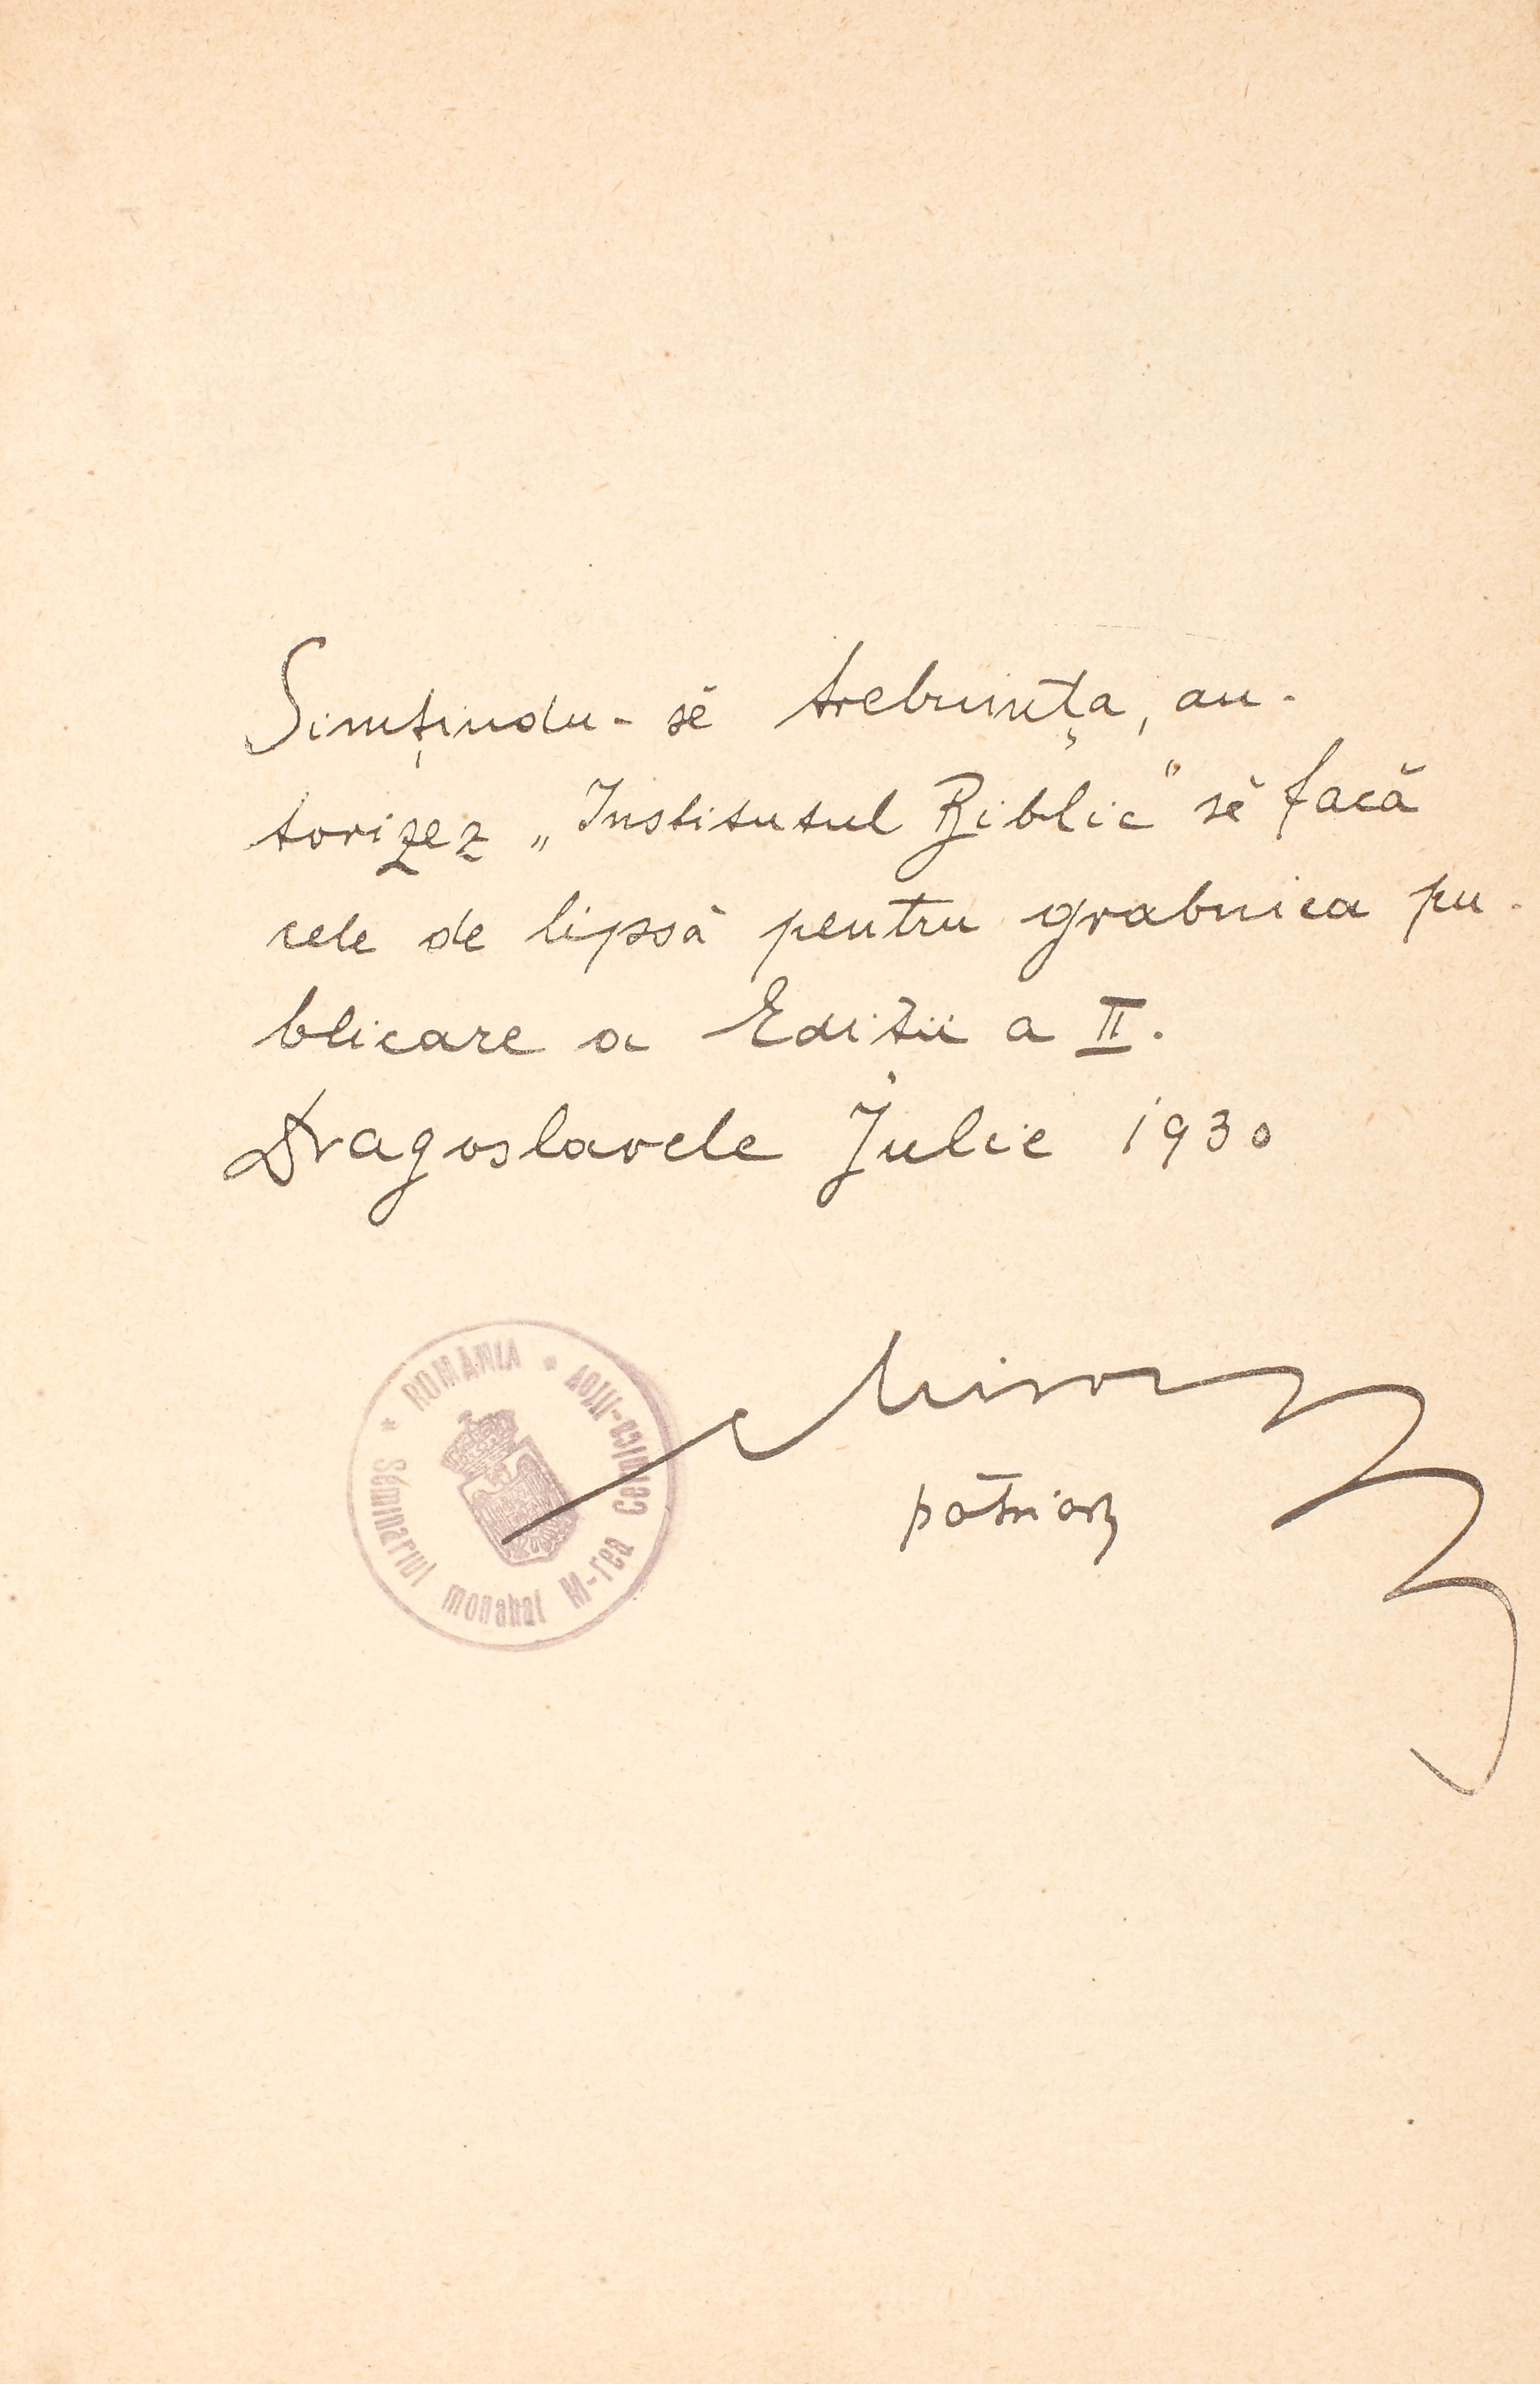 Simțindu-sĕ trebuința, au-
torizez „Institutul Biblic" sĕ facă
cele de lipsă pentru grabnica pu-
blicare a Ediții a II.
Dragoslavele Julie 1930
Miron
patriarh
* ROMÂNIA * Seminariul monahal M-rea Cernica-Ilfov